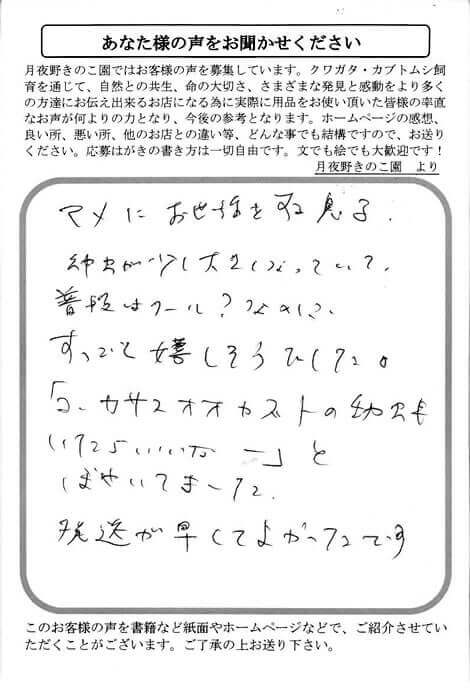 あなた様の声をお聞かせください
月夜野きのこ園ではお客様の声を募集しています。クワガタ・カブトムシ飼
育を通じて、自然との共生、命の大切さ、さまざまな発見と感動をより多く
の方達にお伝え出来るお店になる為に実際に用品をお使い頂いた皆様の率直
なお声が何よりの力となり、今後の参考となります。ホームページの感想、
良い所、悪い所、他のお店との違い等、どんな事でも結構ですので、お送り
ください。応募はがきの書き方は一切自由です。文でも絵でも大歓迎です！
月夜野きのこ園　より
マメに お世話をする 息子.
幼虫が少し大きくなっていて、
普段はクール？なのに、
すっごく嬉しそうでした。
「う、カサスオオカブトの幼虫も
いたらいいなー」と
ぼやいてました.
発送が早くてよかったです
このお客様の声を書籍など紙面やホームページなどで、ご紹介させてい
ただくことがございます。ご了承の上お送り下さい。